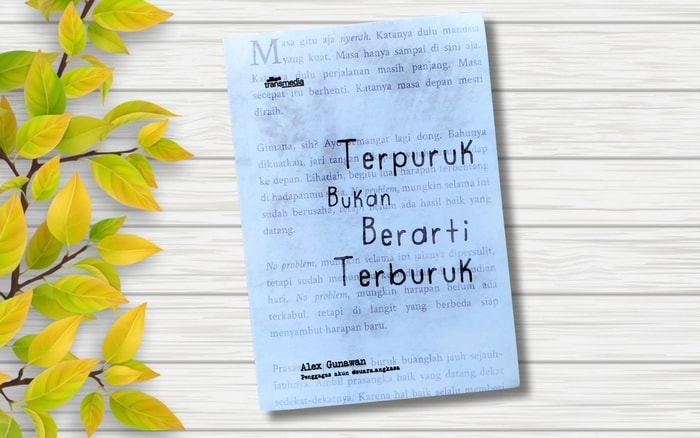 Masa gitu aja nyerah. Katanya dulu manusia
yang kuat. Masa hanya sampai di sini aja.
dulu perjalanan masih panjang. Masa
transmedia
secepat itu berhenti. Katanya masa depan mesti
diraih.
Gimana, sih? Ayo semangat lagi dong. Bahunya
dikuatkan, jari tangan
Terpuruk
ke depan. Lihatlah, begitu luas harapan terbentang
di hadapanmu No problem, mungkin selama ini
Bukan
sudah berusaha, tetapi belum ada hasil baik yang
datang.
Berarti
No problem, mungkin selama ini jalanya dipersulit,
Terburuk
tetapi sudah
hari, No problem, mungkin harapan belum ada
terkabul, tetapi di langit yang berbeda siap
menyambut harapan baru.
Alex Gunawan
buruk buanglah jauh sejauh-
Penggagas akun @suara.angkasa
jauhnya. Ambil prasangka baik yang datang dekat
sedekat-dekatnya. Karena hal baik selalu memberi